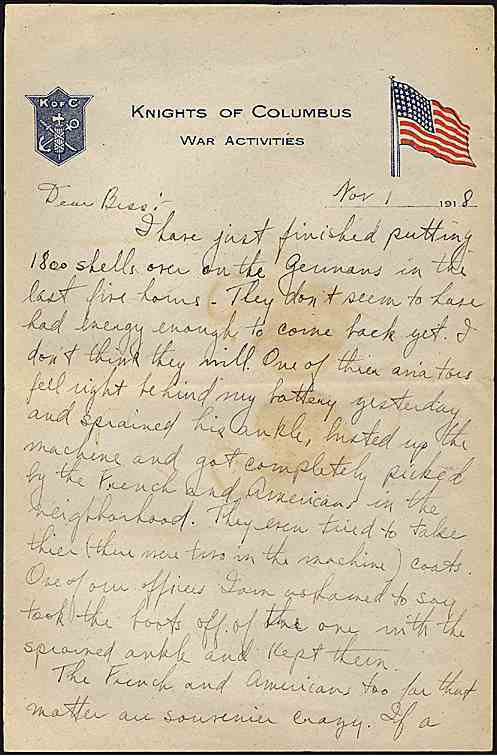 K of C
KNIGHTS OF COLUMBUS
WAR ACTIVITIES
Nov 1 1918
Dear Bess:-
I have just finished putting
1800 shells over on the Germans in the
last five hours - They don't seem to have
had energy enough to come back yet. I
don't think they will. One of thier aviators
fell right behind my battery yesterday
and sprained his ankle, busted up the
machine and got completely picked
by the French and Americans in the
neighborhood. They even tried to take
thier (there were two in the machine) coats.
One of our officers I am ashamed to say
took the boots off of the one with the
sprained ankle and kept them.
The French and Americans too for that
matter are souvenier crazy. If a